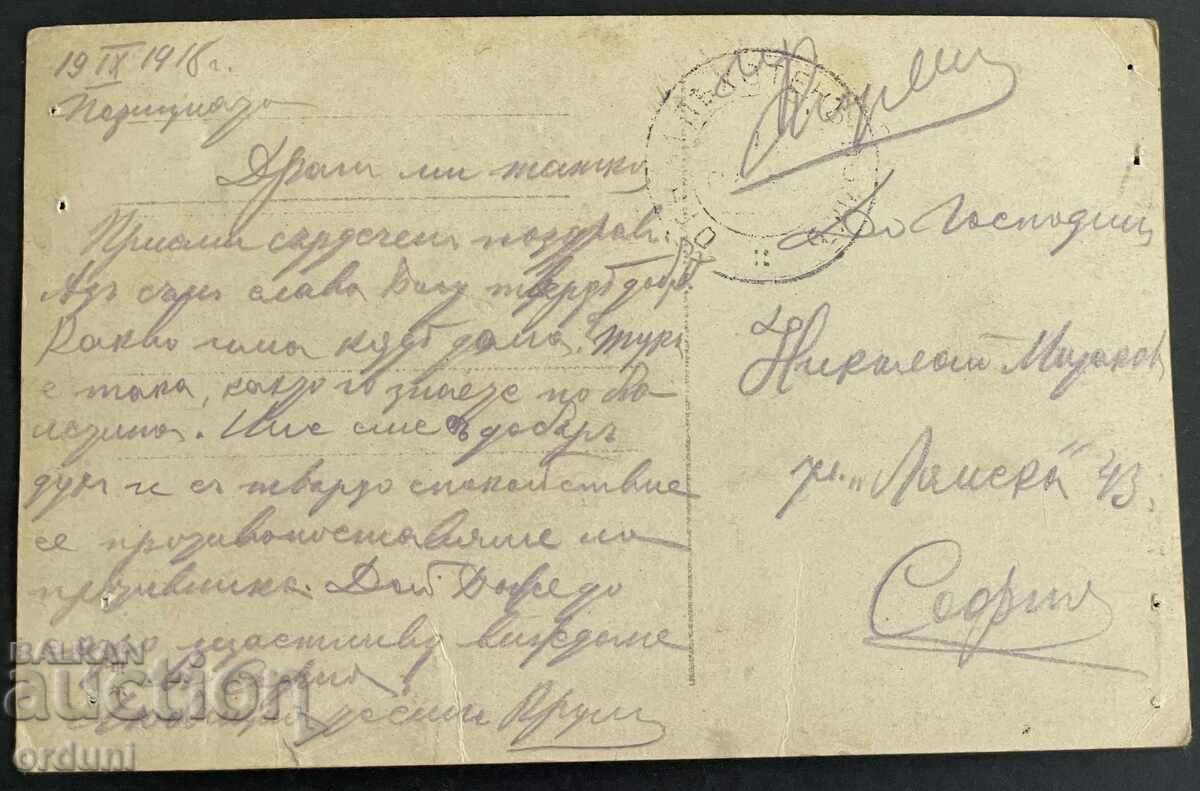 19 IX 1918 г.
Позицията
Драги ми татко,
Приеми сърдечен поздрав.
Азъ съмъ слава Богу твърдѣ добрѣ.
Какво има кждѣ дома? Тукъ
е така, както го знаете по бю-
летина. Ние сме съ добъръ
духъ и съ твърдо спокойствие
се противопоставяме на
противника. Дай Боже до
скоро щастливо виждане
въ София
Крумъ
До Господин
Николай
ул. „ 43.
София
BALKAN
auction
orduni